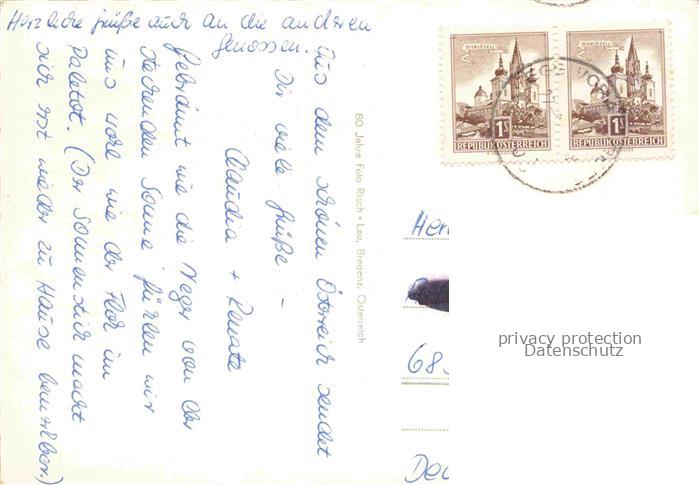 Herzliche Grüße auch an die anderen
Genossen.
Aus dem schönen Österreich sendet
Dir viele Grüße -
Claudia + Renate
Gebräunt wie die Neger von der
stechenden Sonne fühlen wir
uns wohl wie der Floh im
Paletot. (Der Sonnenstich macht
sich erst wieder zu Hause bemerkbar.)
80 Jahre Foto Risch • Lau, Bregenz, Österreich
MARIAZELL
1S
REPUBLIK ÖSTERREICH
MARIAZELL
1S
REPUBLIK ÖSTERREICH
Her
68
Deu
privacy protection
Datenschutz